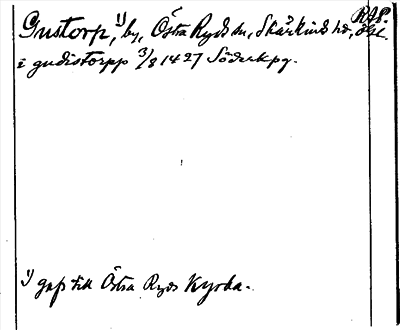 RAP.
Gustorp, 1) by, Östra Ryds sn, Skärkinds hd, Ögl.
i gudistorpp 3/8 1427 Söderkpg.
1) gafs till Östra Ryds Kyrka.